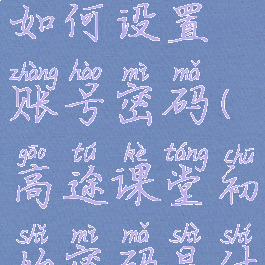 如何设置
zhàng hào mì mǎ
账号密码(
gāo tú kè táng chū
高途课堂初
shǐ mì mǎ shì shí
始密码是什